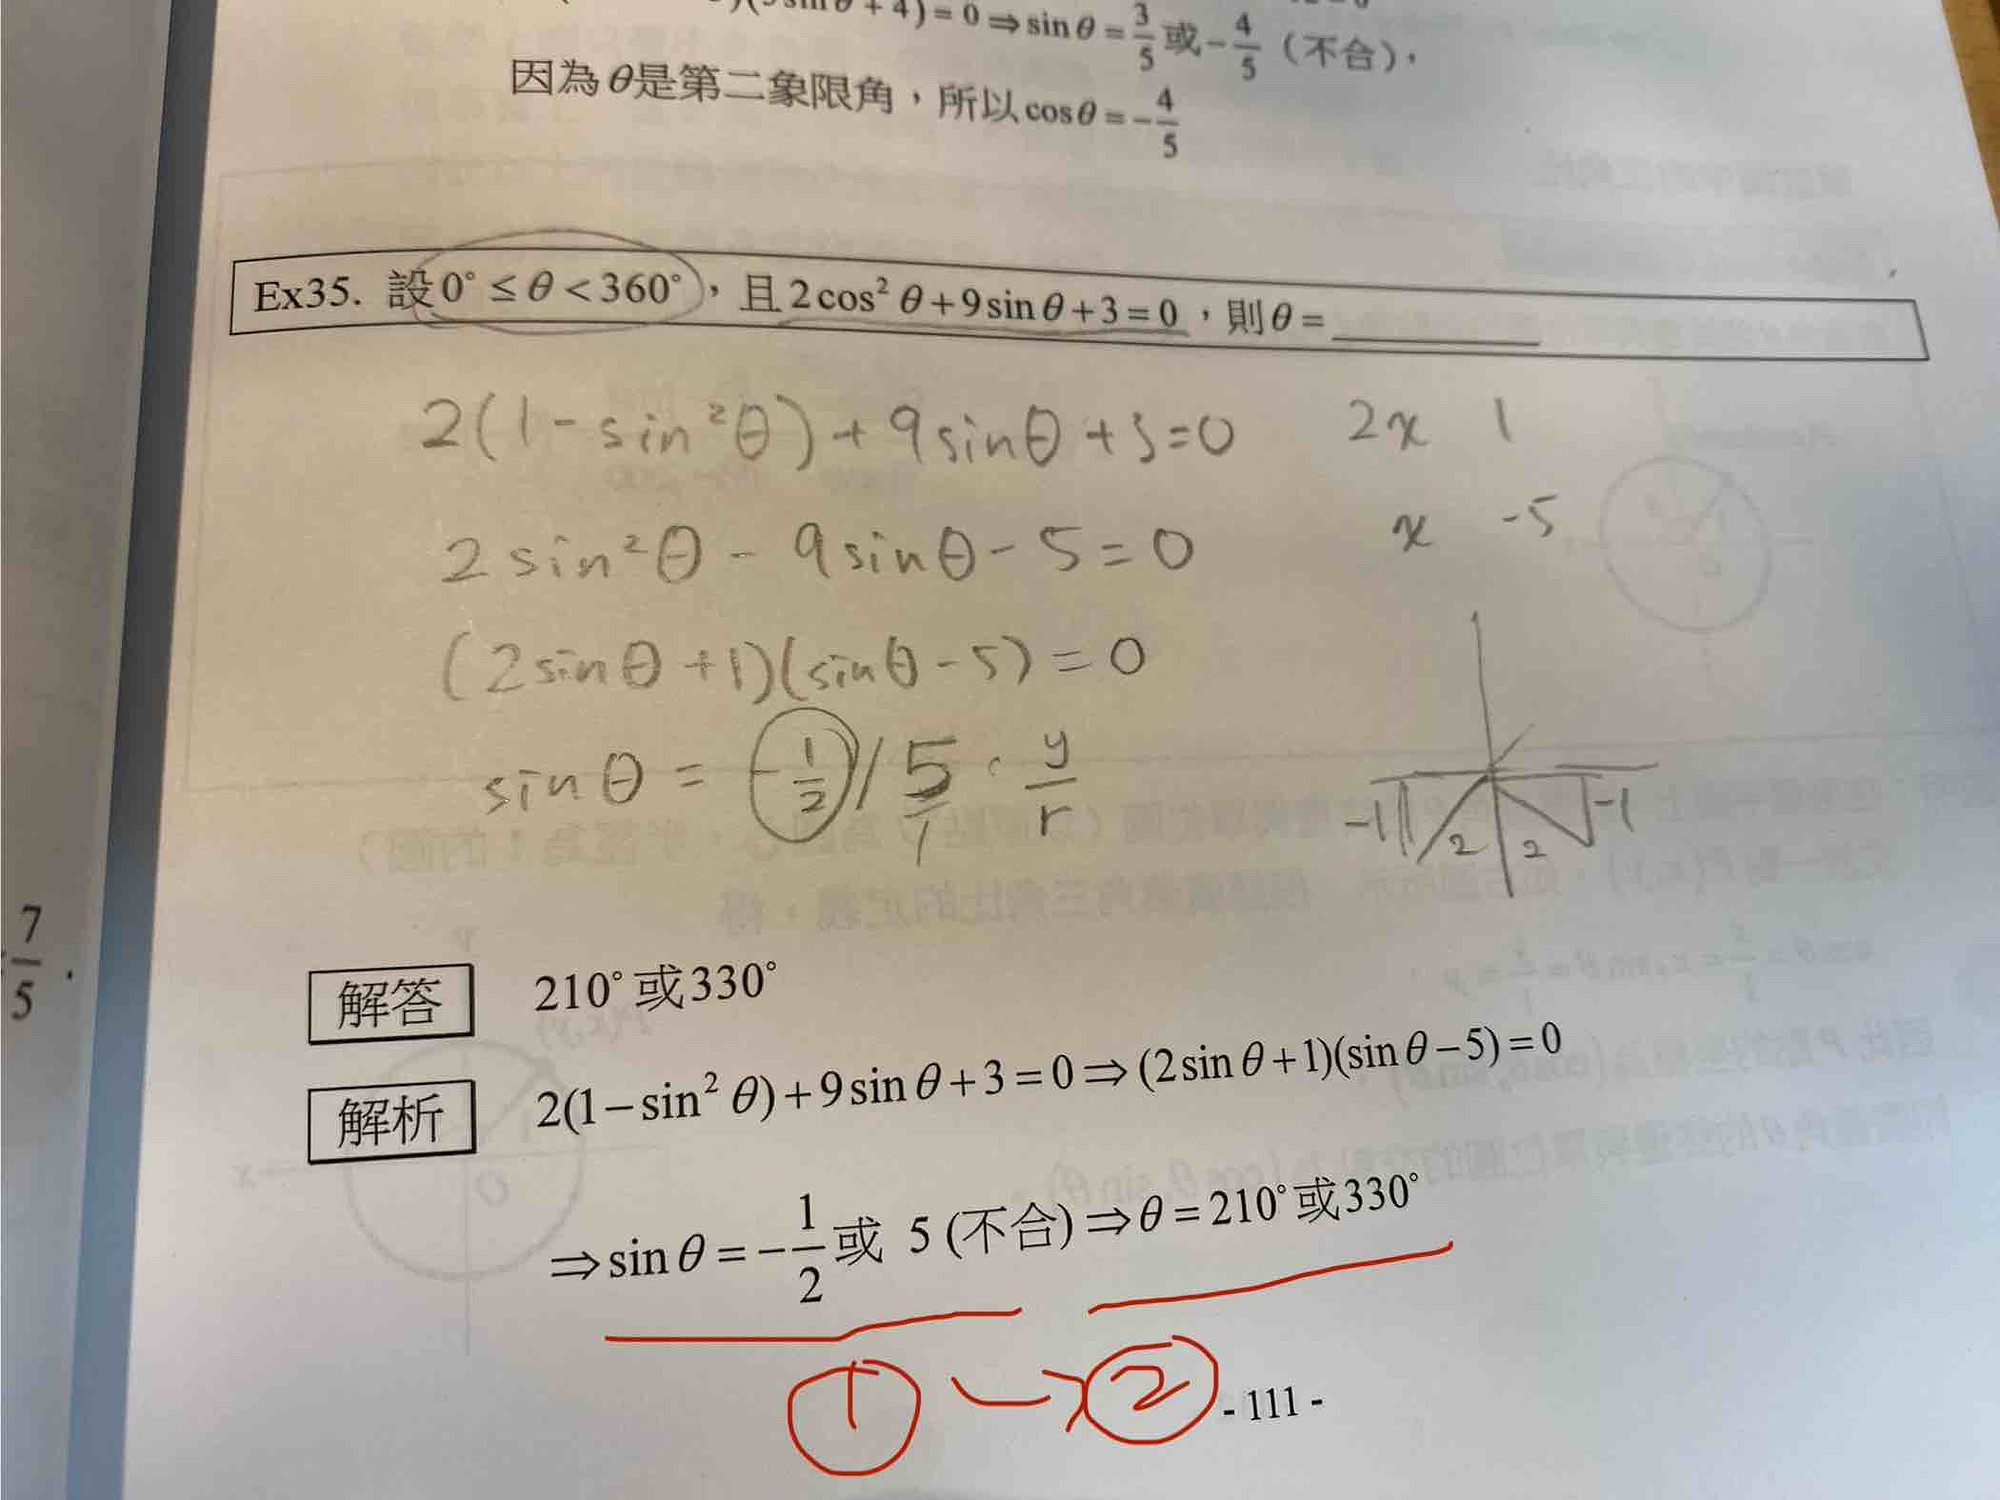 sinθ + 4) = 0 ⇒ sinθ = 3/5 或 -4/5 (不合),
因為θ是第二象限角,所以cosθ = -4/5
Ex35. 設0° ≤ θ < 360°,且2cos²θ+9sinθ+3=0,則θ=
2(1-sin²θ)+9sinθ+3=0
2x 1
2sin²θ - 9sinθ - 5 = 0
x -5
(2sinθ+1)(sinθ-5) = 0
sinθ = -1/2 / 5/1 . y/r
-1 2 2 -1
7/5 .
解答 210°或330°
解析 2(1-sin²θ)+9sinθ+3=0⇒(2sinθ+1)(sinθ-5)=0
⇒sinθ=-1/2 或 5 (不合)⇒θ=210°或330°
1 → 2
- 111 -